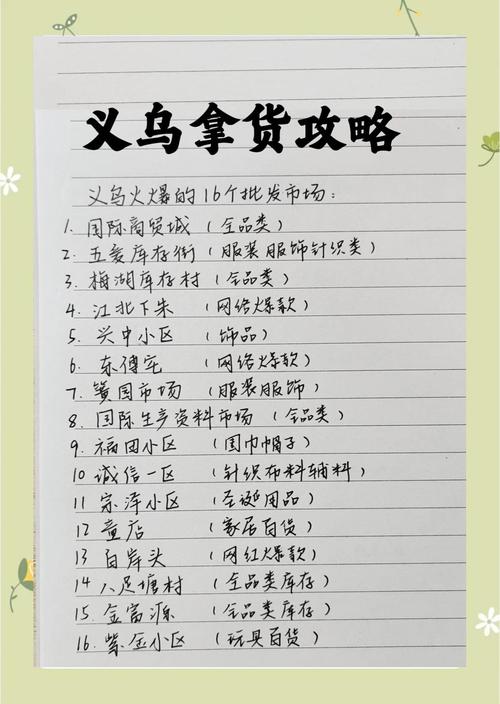 义乌拿货攻略
义乌火爆的16个批发市场：
1. 国际商贸城（全品类）
2. 五爱库存街（服装服饰针织类）
3. 梅湖库存村（全品类）
4. 江北下朱（网络爆款）
5. 兴中小区（饰品）
6. 东傅宅（网络爆款）
7. 篁园市场（服装服饰）
8. 国际生产资料市场（全品类）
9. 福田小区（围巾帽子）
10 诚信一区（针织布料辅料）
11 宗泽小区（圣诞用品）
12 童店（家居百货）
13 白岸头（网红爆款）
14 八足塘村（全品类库存）
15. 金富源（全品类库存）
16. 紫金小区（玩具百货）